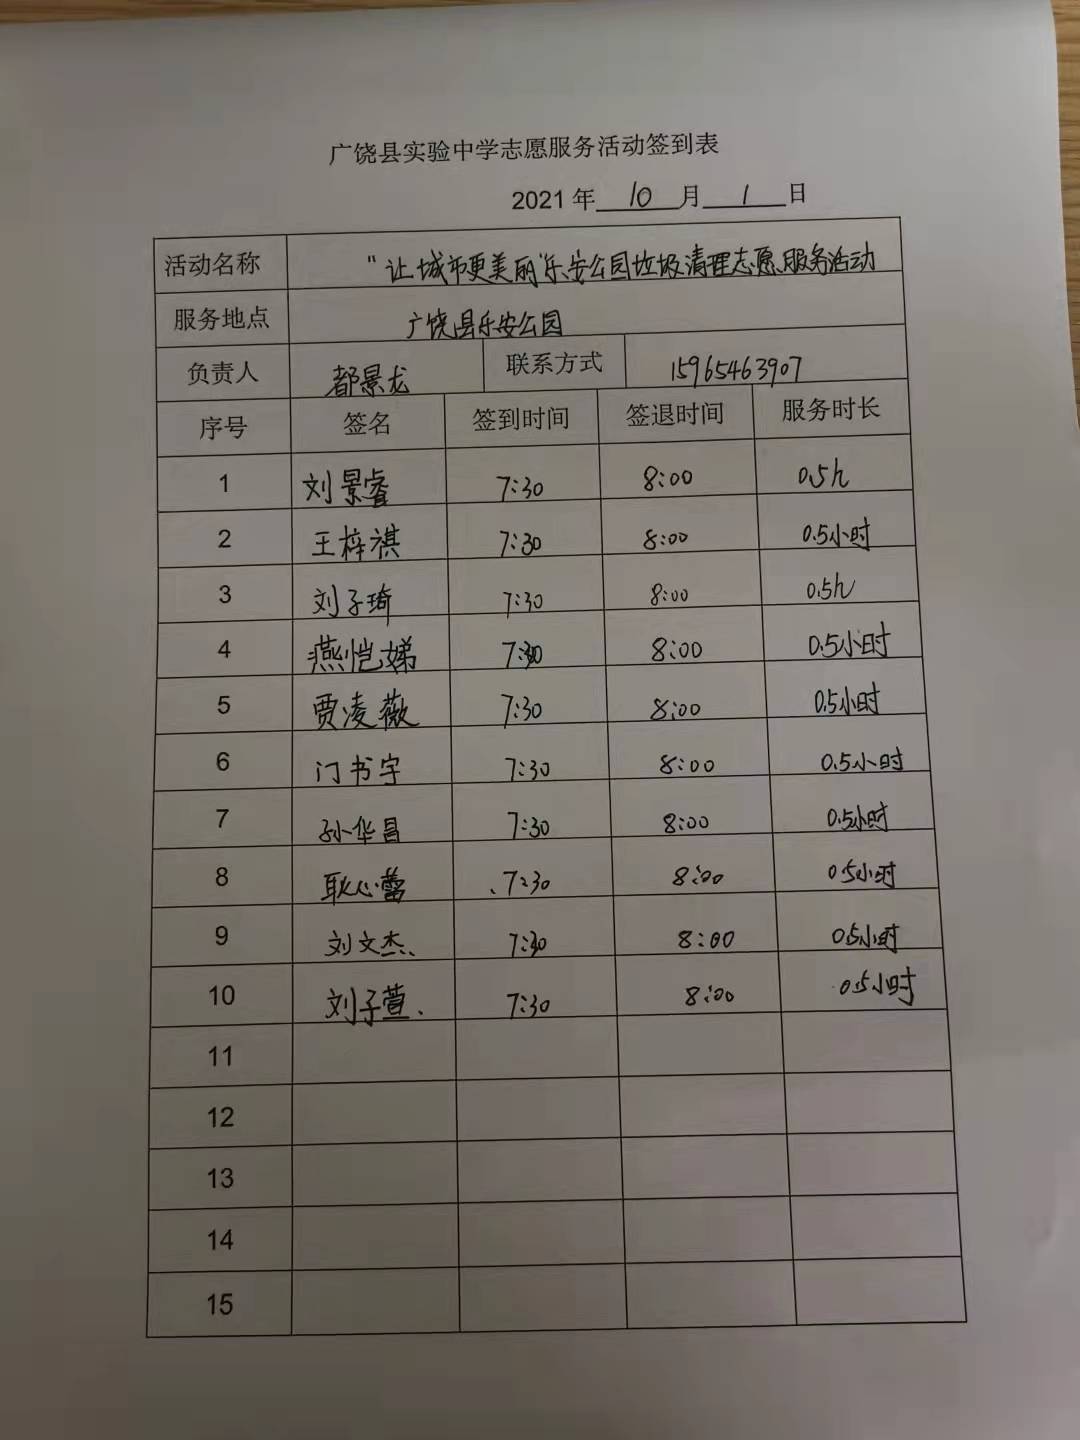 广饶县实验中学志愿服务活动签到表
2021 年 10 月 1 日
活动名称 "让城市更美丽"乐安公园垃圾清理志愿服务活动
服务地点 广饶县乐安公园
负责人 都景龙 联系方式 15965463907
序号 签名 签到时间 签退时间 服务时长
1 刘景睿 7:30 8:00 0.5h
2 王梓祺 7:30 8:00 0.5小时
3 刘子琦 7:30 8:00 0.5h
4 燕恺娣 7:30 8:00 0.5小时
5 贾凌薇 7:30 8:00 0.5小时
6 门书宇 7:30 8:00 0.5小时
7 孙华昌 7:30 8:00 0.5小时
8 耿心蕾 7:30 8:00 0.5小时
9 刘文杰 7:30 8:00 0.5小时
10 刘子萱 7:30 8:00 0.5小时
11
12
13
14
15